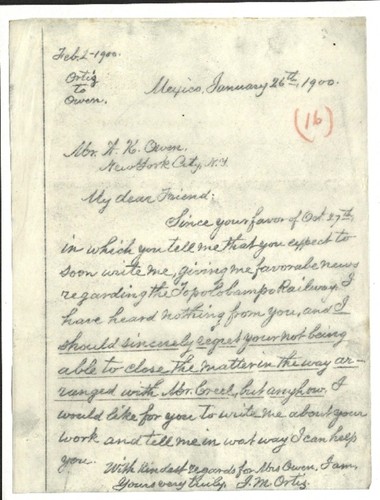 Feb. 2-1900.
Ortiz
to
Owen.
Mexico, January 26th, 1900.
(16)
Mr. A. K. Owen.
New York City, N.Y.
My dear Friend:
Since your favor of Oct. 27th,
in which you tell me that you expect to
soon write me, giving me favorable news
regarding the Topolobampo Railway, I
have heard nothing from you, and I
should sincerely regret your not being
able to close the matter in the way ar-
ranged with Mr. Creel, but anyhow, I
would like for you to write me about your
work and tell me in wat way I can help
you.
With kindest regards for Mrs Owen, I am,
Yours very truly, I. M. Ortiz.